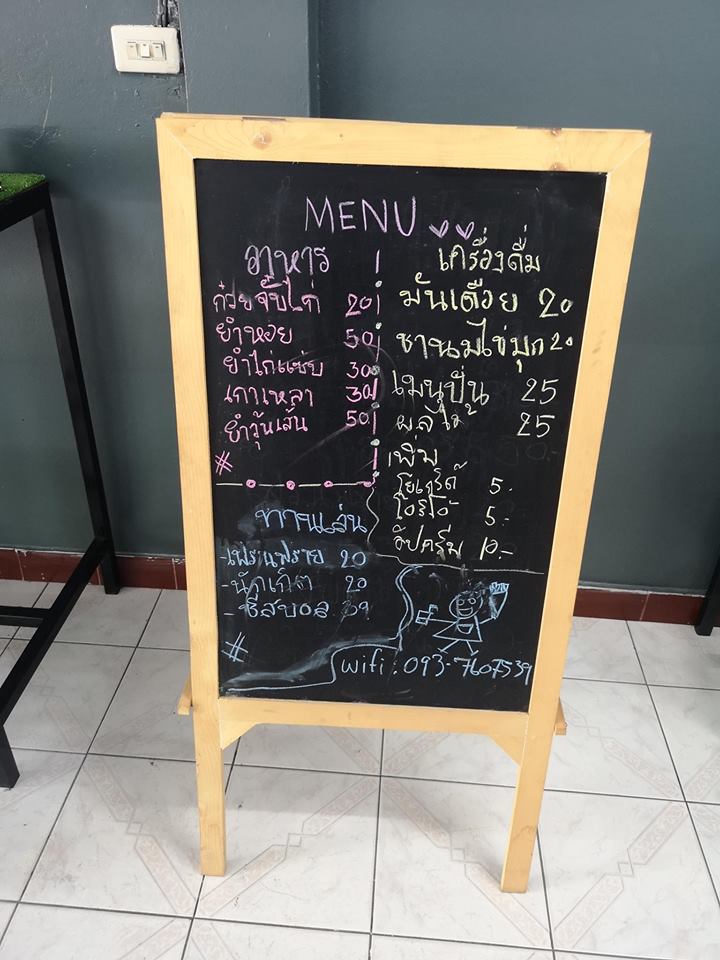 MENU
อาหาร
ก๋วยจั๊บไก่ 20
ยำหอย 50
ยำไก่แซ่บ 30
เกาเหลา 30
ยำวุ้นเส้น 50
#
เครื่องดื่ม
มันเดือย 20
ชานมไข่มุก 20
เมนูปั่น 25
ผลไม้ 25
เพิ่ม
โยเกิร์ต 5.
โอริโอ้ 5.-
วิปครีม 10.-
ทานเล่น
-เฟรนฟราย 20
-นักเก็ต 20
-ชีสบอล
#
wifi : 093-7607539